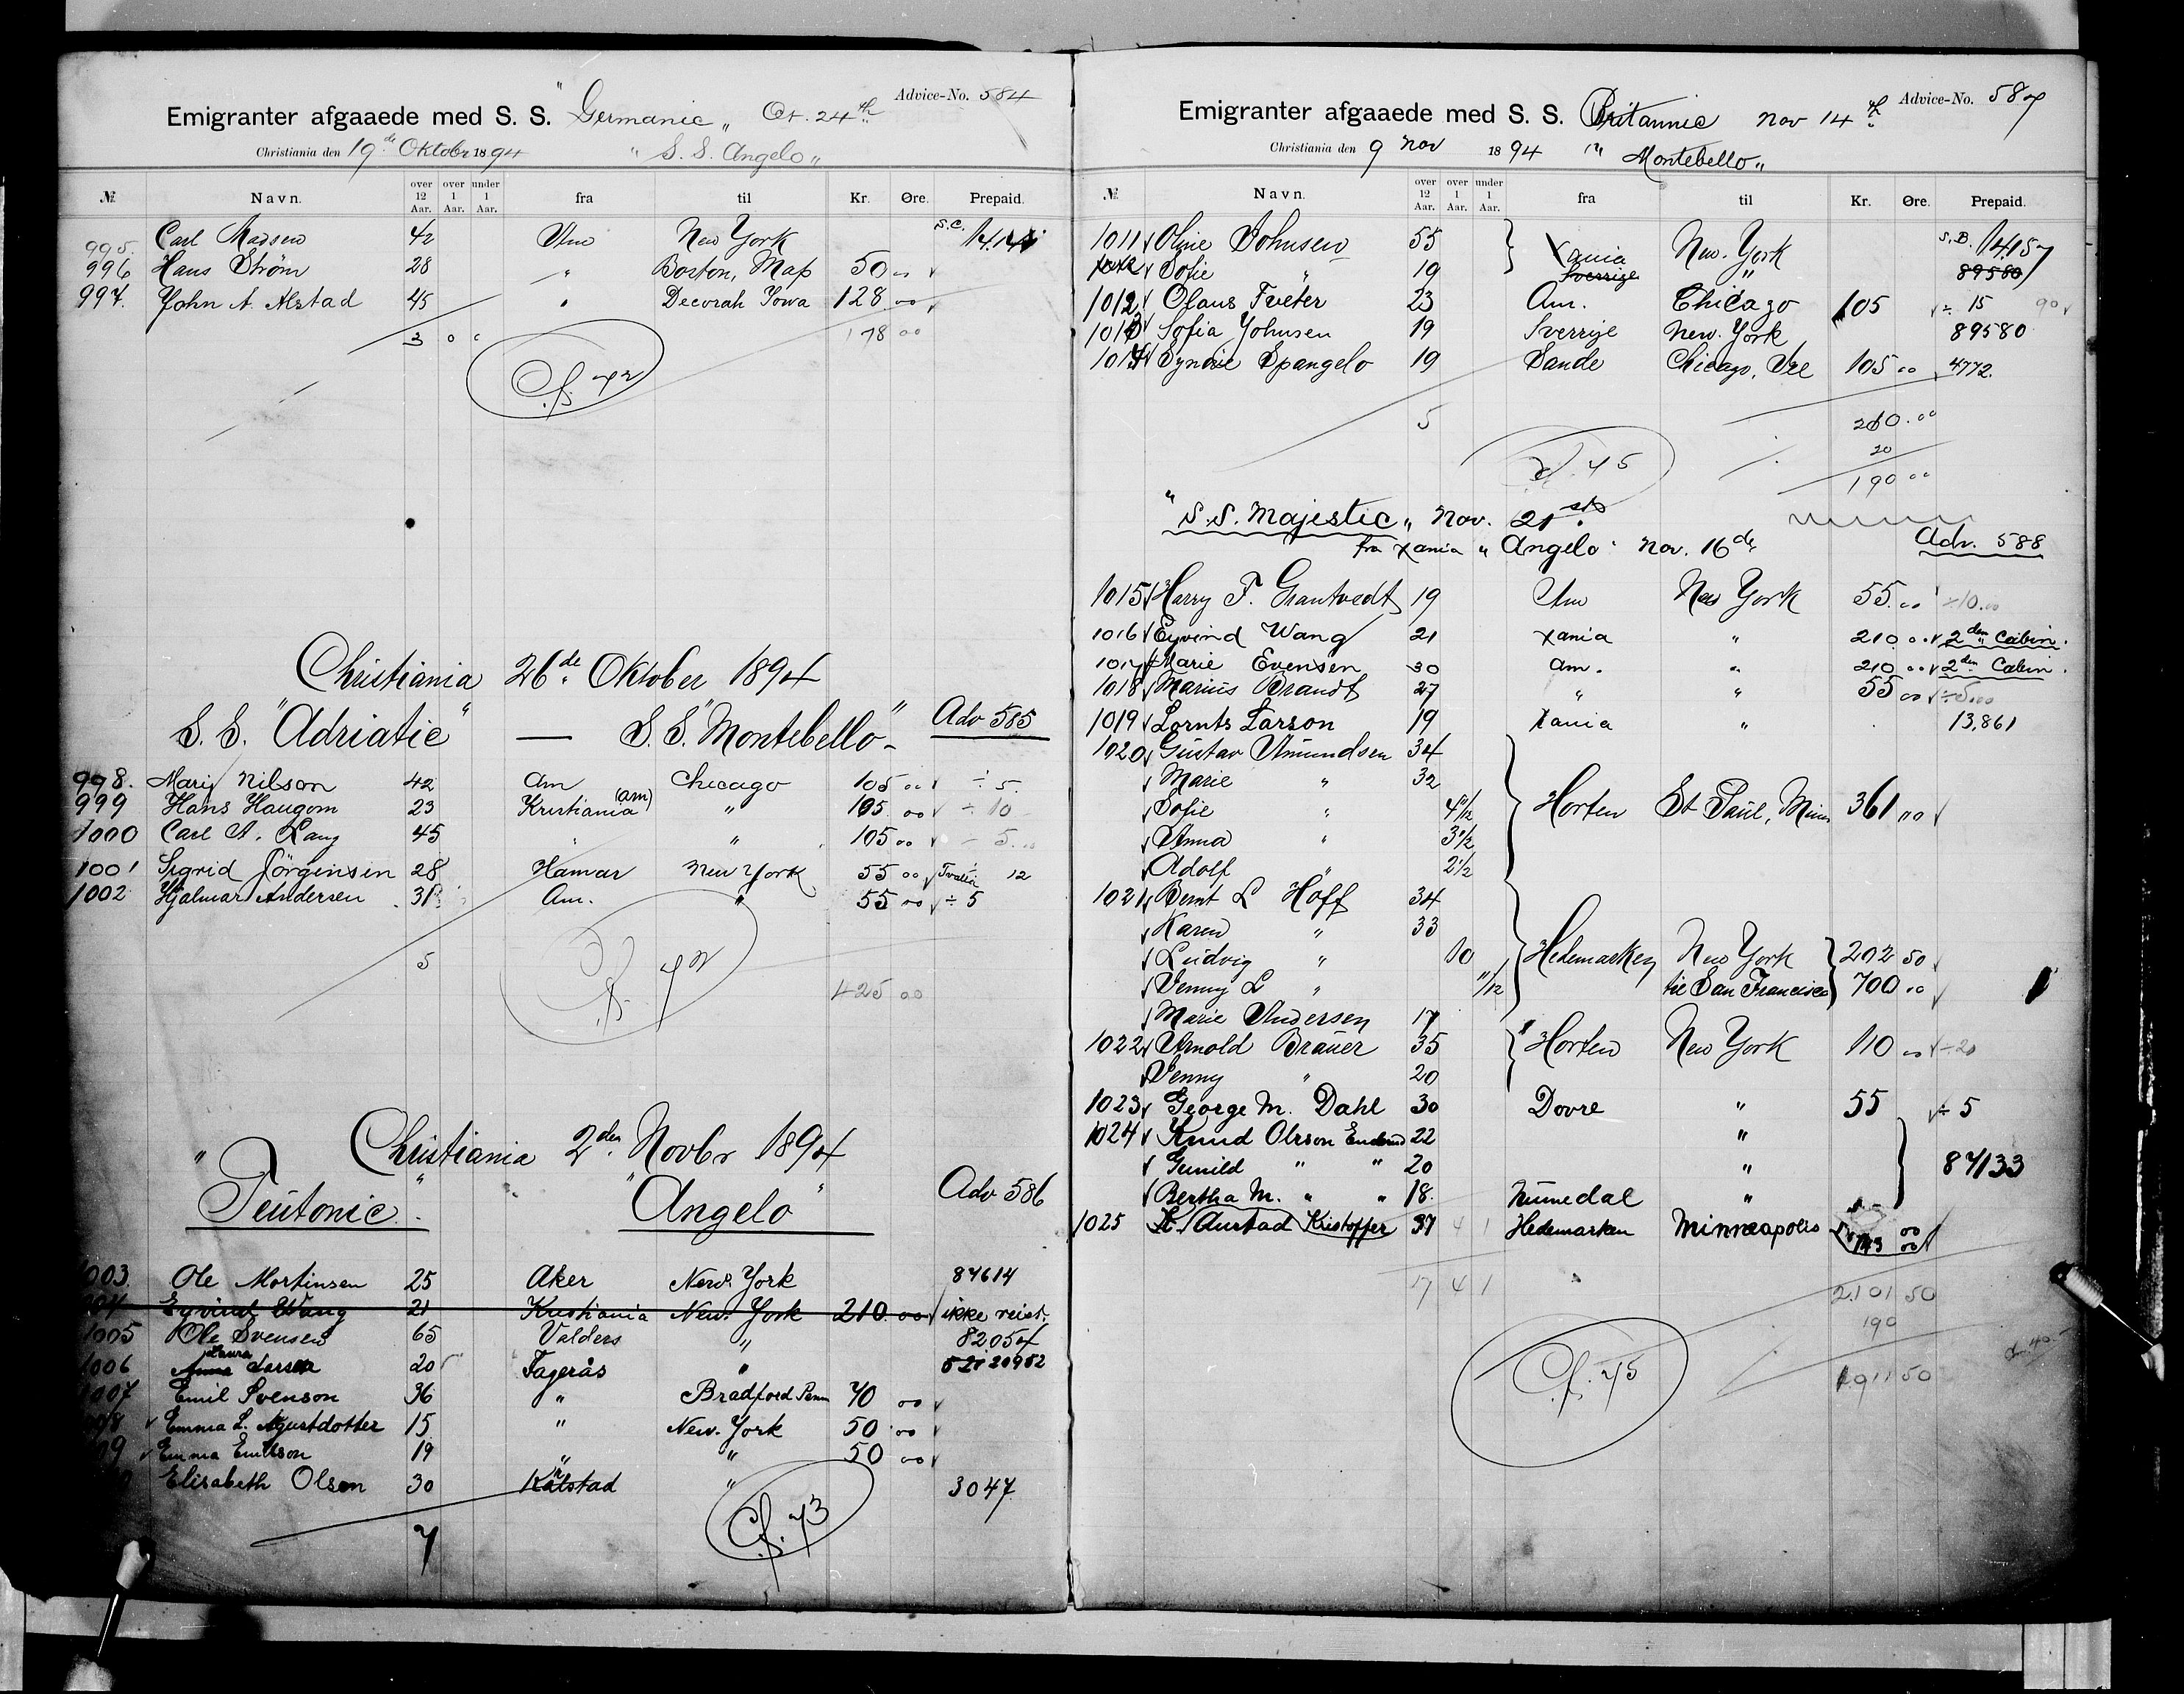 Advice-No. 584
Emigranter afgaaede med S. S. "Germanic„ Oct. 24th
Christiania den 19de Oktobr 1894 "S. S. Angelo„
№ Navn. over 12 Aar. over 1 Aar. under 1 Aar. fra til Kr. Øre. Prepaid.
995. Carl Madsen 42 Am New York S.C.
996 Hans Strøm 28 " Boston, Mass 50 00
997. John A. Alstad 45 " Decorah Iowa 128 00
3 0 0 178 00
Christiania 26de Oktober 1894
S. S. "Adriatic" — S. S. "Montebello" Adv 585
998. Mary Nilson 42 Am Chicago 105 00 ÷ 5.
999 Hans Haugom 23 Kristiania (am) " 105 00 ÷ 10
1000 Carl A. Lang 45 " " 105 00 - 5
1001 Sigrid Jörginsen 28 Hamar New York 55 00 12
1002 Hjalmar Andersen 31 Am. " 55 00 ÷ 5
5
425 00
Christiania 2den Novbr 1894
"Teutonic" "Angelo" Adv 586
1003. Ole Mortinsen 25 Aker New York 87614
Eyvind Wang 21 Kristiania New York 210 00 ikke reist.
1005 Ole Svensen 65 Valders " 82054
1006 Laura Larsen 20 Fagerås "
1007 Emil Svenson 36 " Bradford Penn 70 00
Emma L. Agustdotter 15 " New York 50 00
Emma Emilson 19 " " 50 00
Elisabeth Olsen 30 " 3047
7
Cf. 73
Advice-No. 587
Emigranter afgaaede med S. S. Britannic Nov 14th
Christiania den 9 Nov 1894 "Montebello„
№ Navn. over 12 Aar. over 1 Aar. under 1 Aar. fra til Kr. Øre. Prepaid.
1011 Oline Johnsen 55 Xania New York S.B. 14157
1012 Sofie " 19 Sverrige " 89580
1012 Olaus Tveter 23 Am. Chicago 105 ÷ 15
1013 Sofia Johnsen 19 Sverrige New York 89580
1014 Syndve Spangelo 19 Sande Chicago, Ill 105 00 4772.
5
210.00
20
190 00
"S.S. Majestic„ Nov. 21st
fra Xania "Angelo" Nov. 16de Adv. 588
1015 Harry T. Grantvedt 19 Am New York 55.00 ÷10.00
1016 Eyvind Wang 21 Xania " 210 00 2den Cabin.
1017 Marie Evensen 30 am. " 210 00 2den Cabin.
1018 Marius Brandt 27 " " 55 00 ÷5.00
1019 Lornts Larson 19 Xania " 13,861
1020 Gustav Amundsen 34
Marie " 32
Sofie " 4 1/2 Horten St Paul, Minn 361 00
Anna " 3 1/2
Adolf " 2 1/2
1021 Bernt L Hoff 34
Karen " 33
Ludvig " 10 Hedemarken New York 202 50
Jenny L " 11/12 til San Francisco 700 00
Marie Andersen 17
1022 Arnold Brauer 35 Horten New York 110 00 ÷20
Jenny " 20
1023 George M. Dahl 30 Dovre " 55 ÷ 5
1024 Knud Olsson 22 "
Gunild " " 20 " 87133
Bertha M. " " 18. Numedal "
1025 K. Aurstad Kristoffer 37 Hedemarken Minneapolis 143 00
17 4 1
2101 50
190
1911 50
Cf. 75